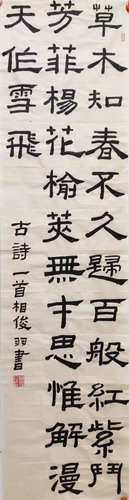 草木知春不久歸百般紅紫鬥
芳菲楊花榆莢無才思惟解漫
天作雪飛
古詩一首相俊羽書